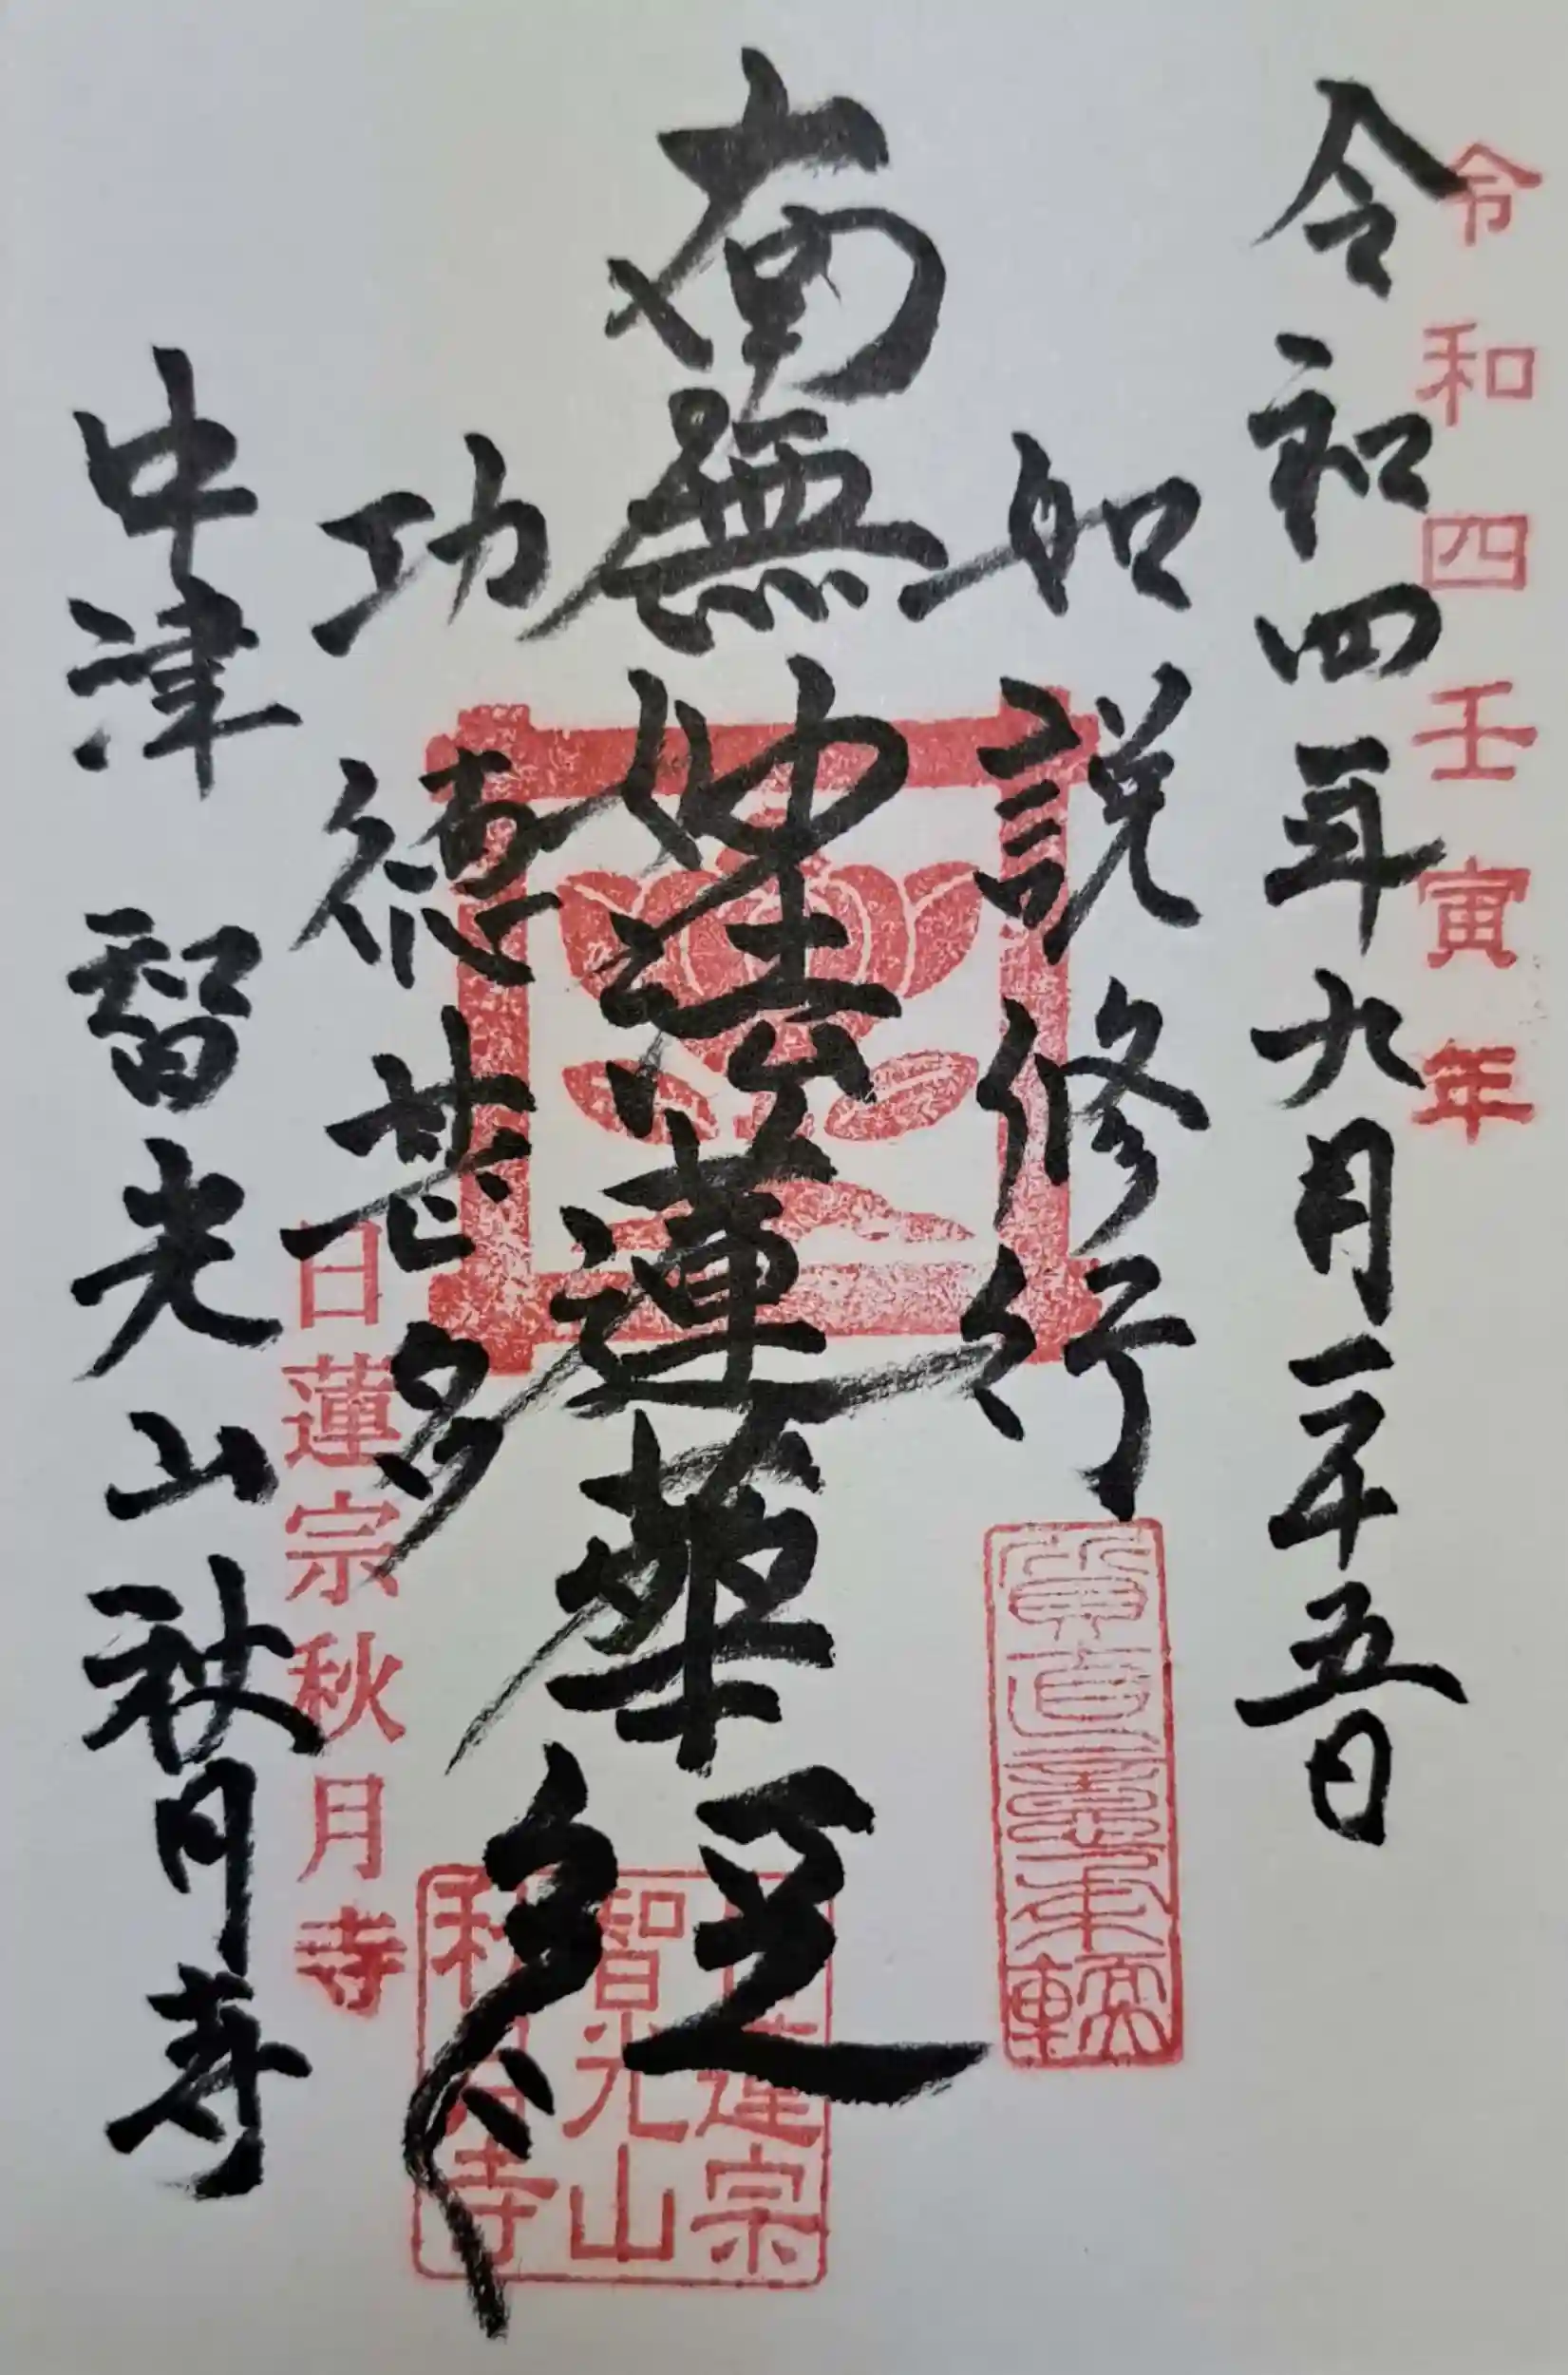 令和四壬寅年
令和四年九月二十五日
如説修行
南無妙法蓮華経
功徳甚多
日蓮宗秋月寺
中津 智光山秋月寺
日蓮宗
智光山
秋月寺